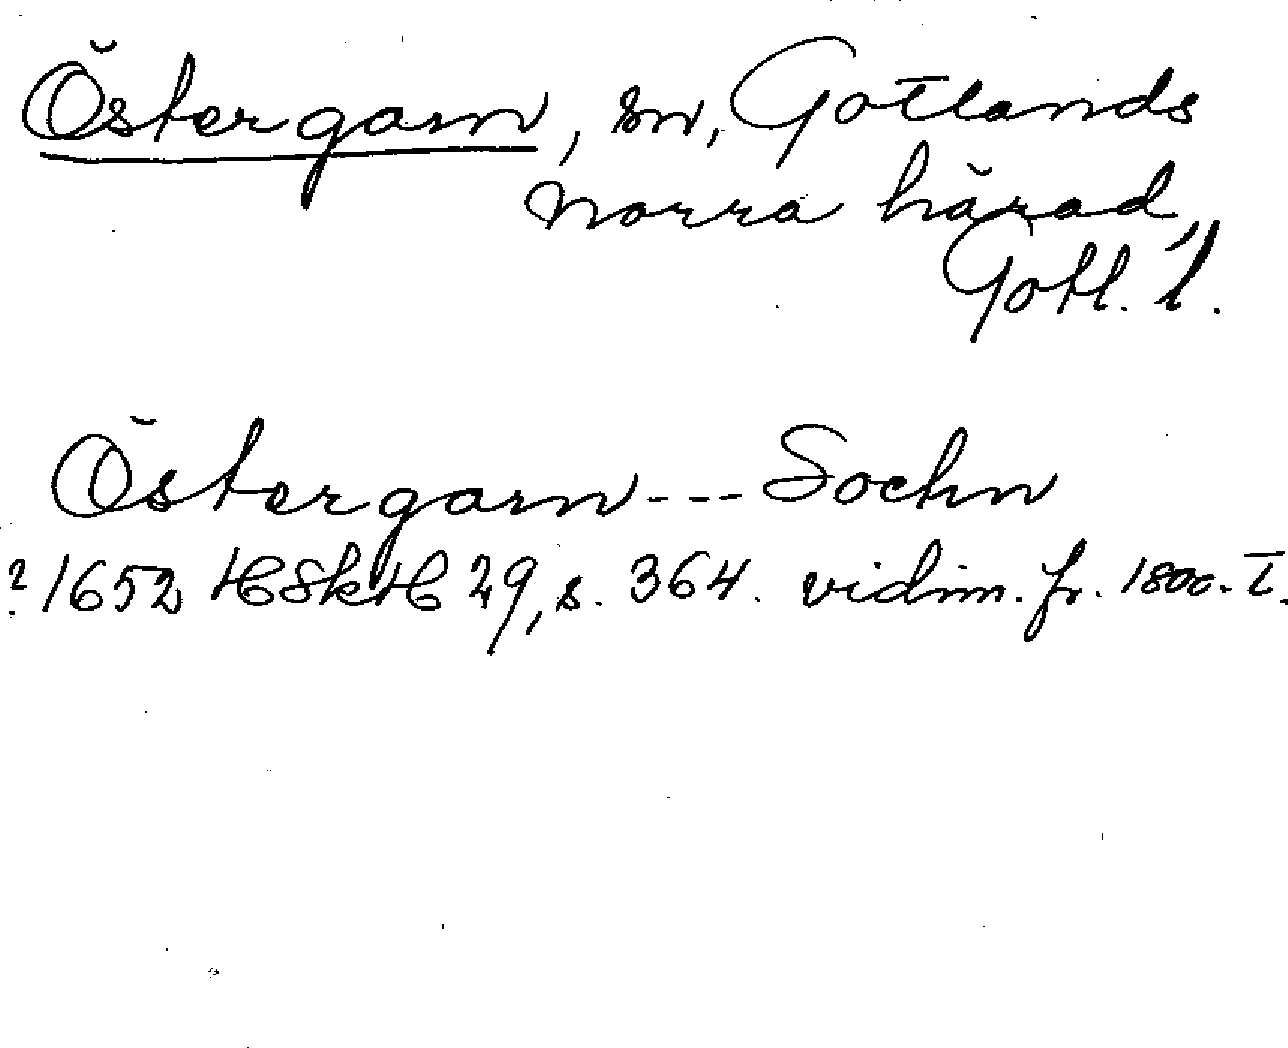 Östergarn, sn, Gotlands
norra härad,
Gotl. l.
Östergarn --- Sochn
? 1652 HSkH 29, s. 364. vidim. fr. 1800-t.